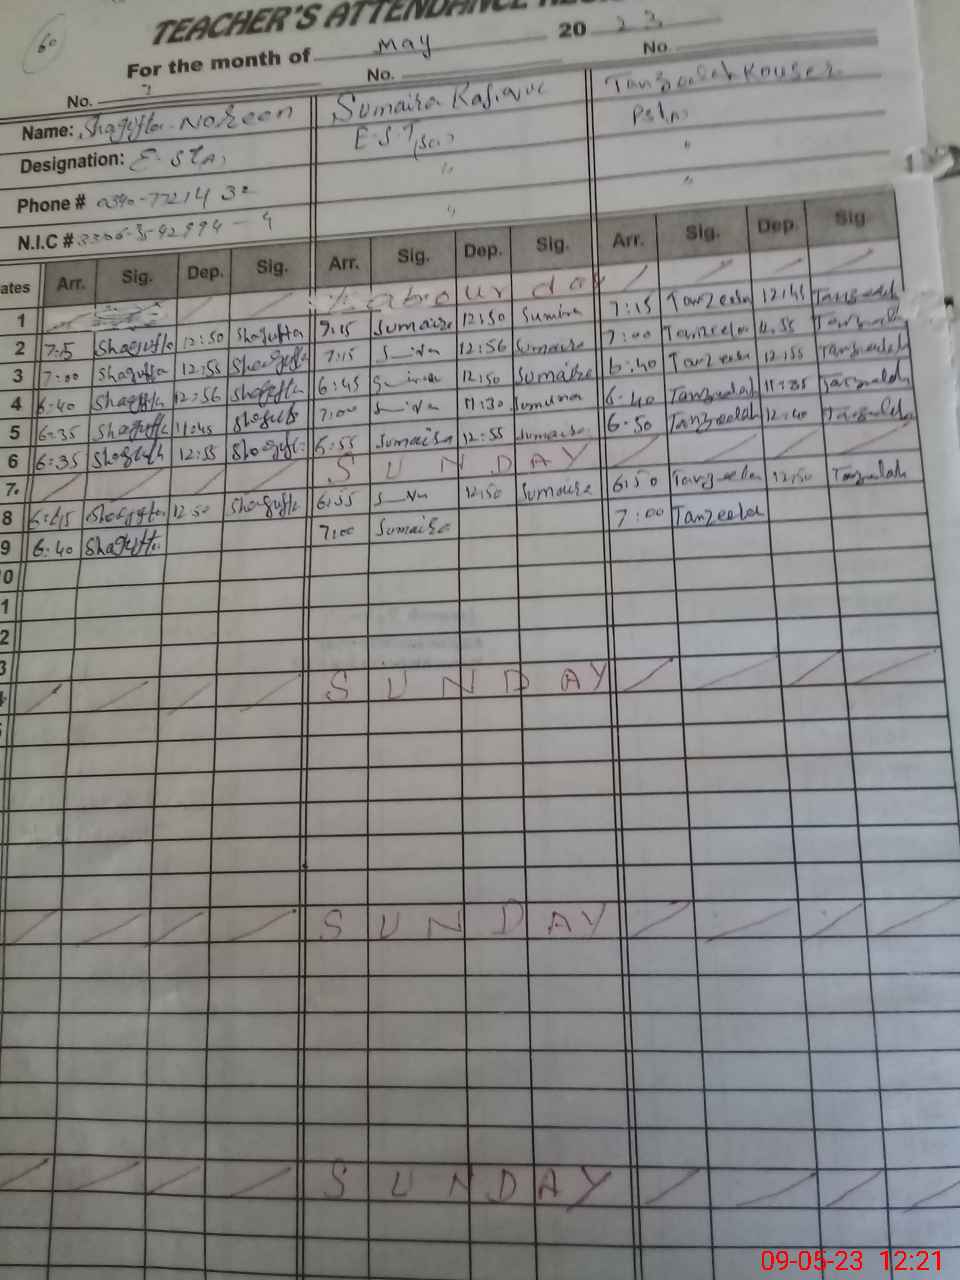 60
TEACHER'S ATTENDANCE
For the month of May 2023
No. No. No.
Name: Shagufta Noreen Sumaira Tanzeelah Kouser
Designation: E.S.T(A) E.S.T(Sci)
Phone #
N.I.C #
ates Arr. Sig. Dep. Sig. Arr. Sig. Dep. Sig. Arr. Sig. Dep. Sig.
1 Labour day
2 7:15 Shagufta 12:50 Shagufta 7:15 Sumaira 12:50 Sumaira 7:15 Tanzeela 12:45 Tanzeelah
3 7:00 Shagufta 12:55 Shagufta 7:15 12:56 Sumaira 7:00 Tanzeela Tanzeelah
4 6:40 Shagufta 12:56 Shagufta 6:45 12:50 Sumaira 6:40 Tanzeela 12:55 Tanzeelah
5 6:35 Shagufta 11:45 Shagufta 7:00 11:30 Sumaira 6:40 Tanzeelah 11:35 Tanzeelah
6 6:35 Shagufta 12:55 Shagufta 6:55 Sumaira 12:55 Sumaira 6:50 Tanzeelah 12:40 Tanzeelah
7 SUNDAY
8 6:45 Shagufta 12:50 Shagufta 6:55 12:50 Sumaira 6:50 Tanzeela 12:50 Tanzeelah
9 6:40 Shagufta 7:00 Sumaira 7:00 Tanzeela
0
1
2
3
SUNDAY
SUNDAY
SUNDAY
09-05-23 12:21